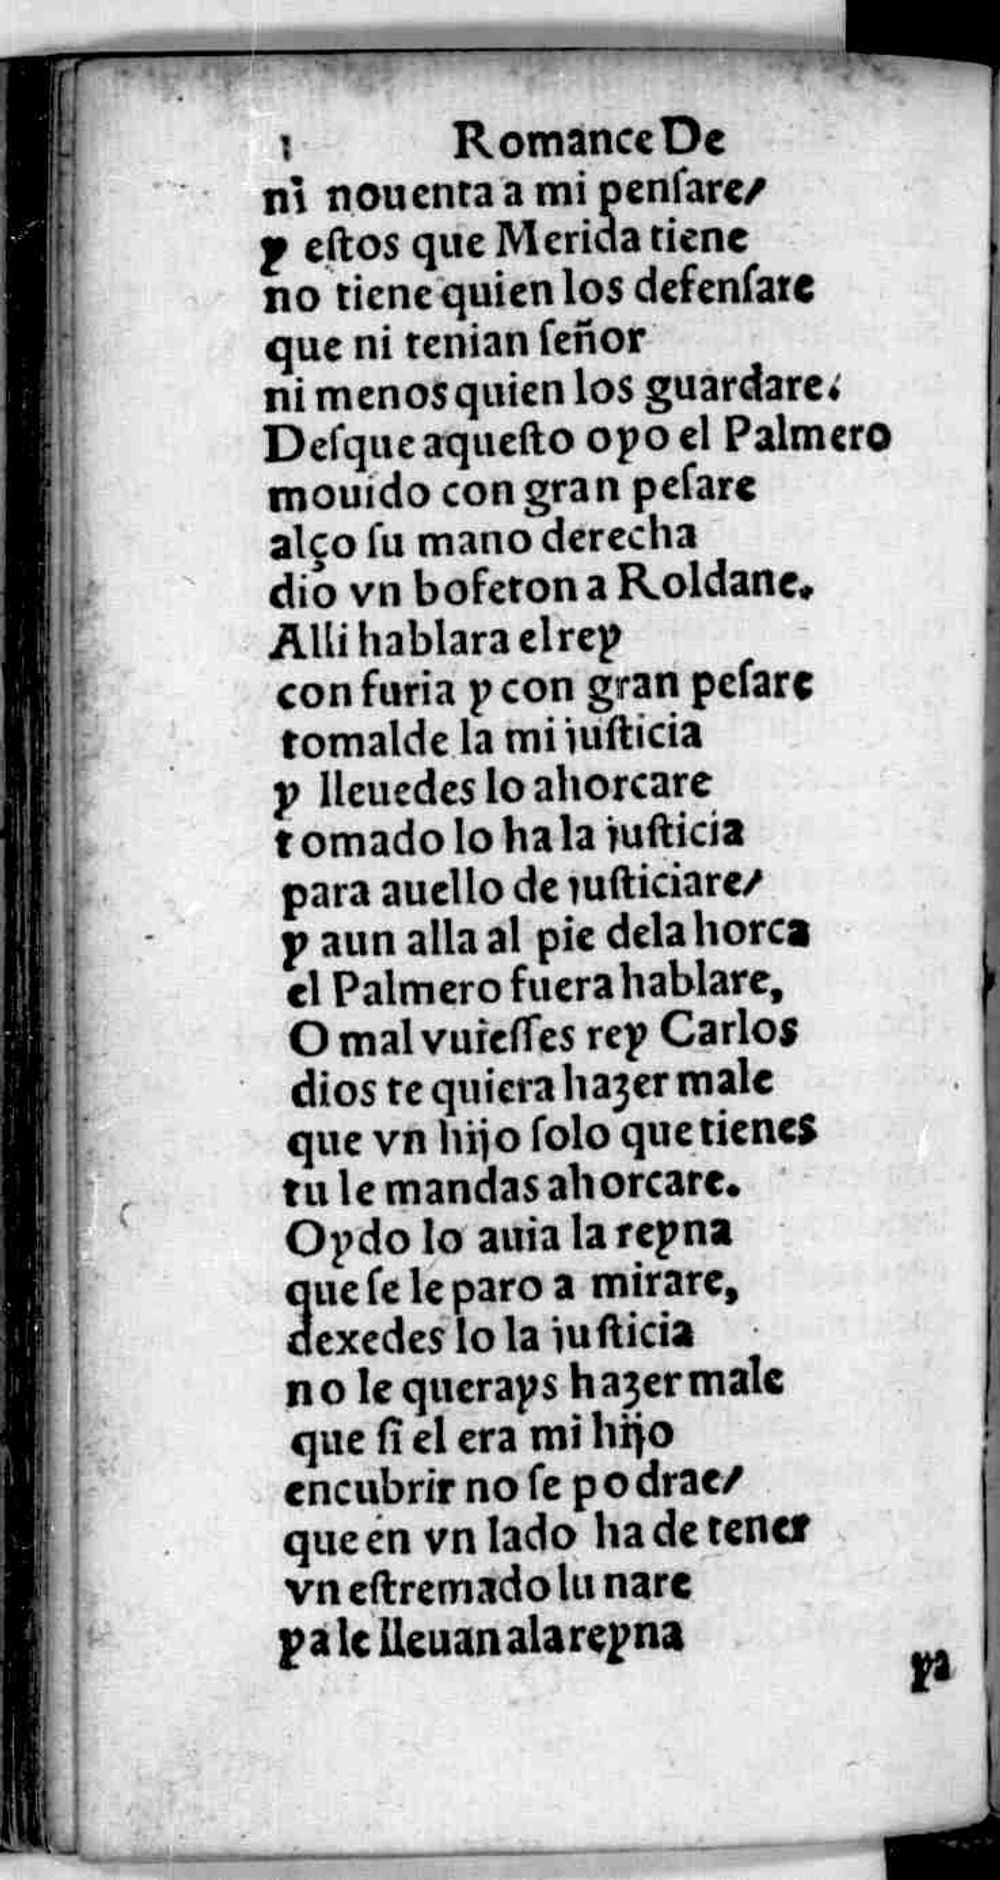 Romance De
ni nouenta a mi penſare/
y eſtos que Merida tiene
no tiene quien los defenſare
que ni tenian ſeñor
ni menos quien los guardare.
Deſque aqueſto oyo el Palmero
mouido con gran peſare
alço ſu mano derecha
dio vn bofeton a Roldane.
Alli hablara el rey
con furia y con gran peſare
tomalde la mi iuſticia
y lleuedes lo ahorcare
tomado lo ha la iuſticia
para auello de iuſticiare/
y aun alla al pie dela horca
el Palmero fuera hablare,
O mal vuieſſes rey Carlos
dios te quiera hazer male
que vn hijo ſolo que tienes
tu le mandas ahorcare.
Oydo lo auia la reyna
que ſe le paro a mirare,
dexedes lo la iuſticia
no le querays hazer male
que ſi el era mi hijo
encubrir no ſe podrae/
que en vn lado ha de tener
vn eſtremado lunare
ya le lleuan ala reyna
ya